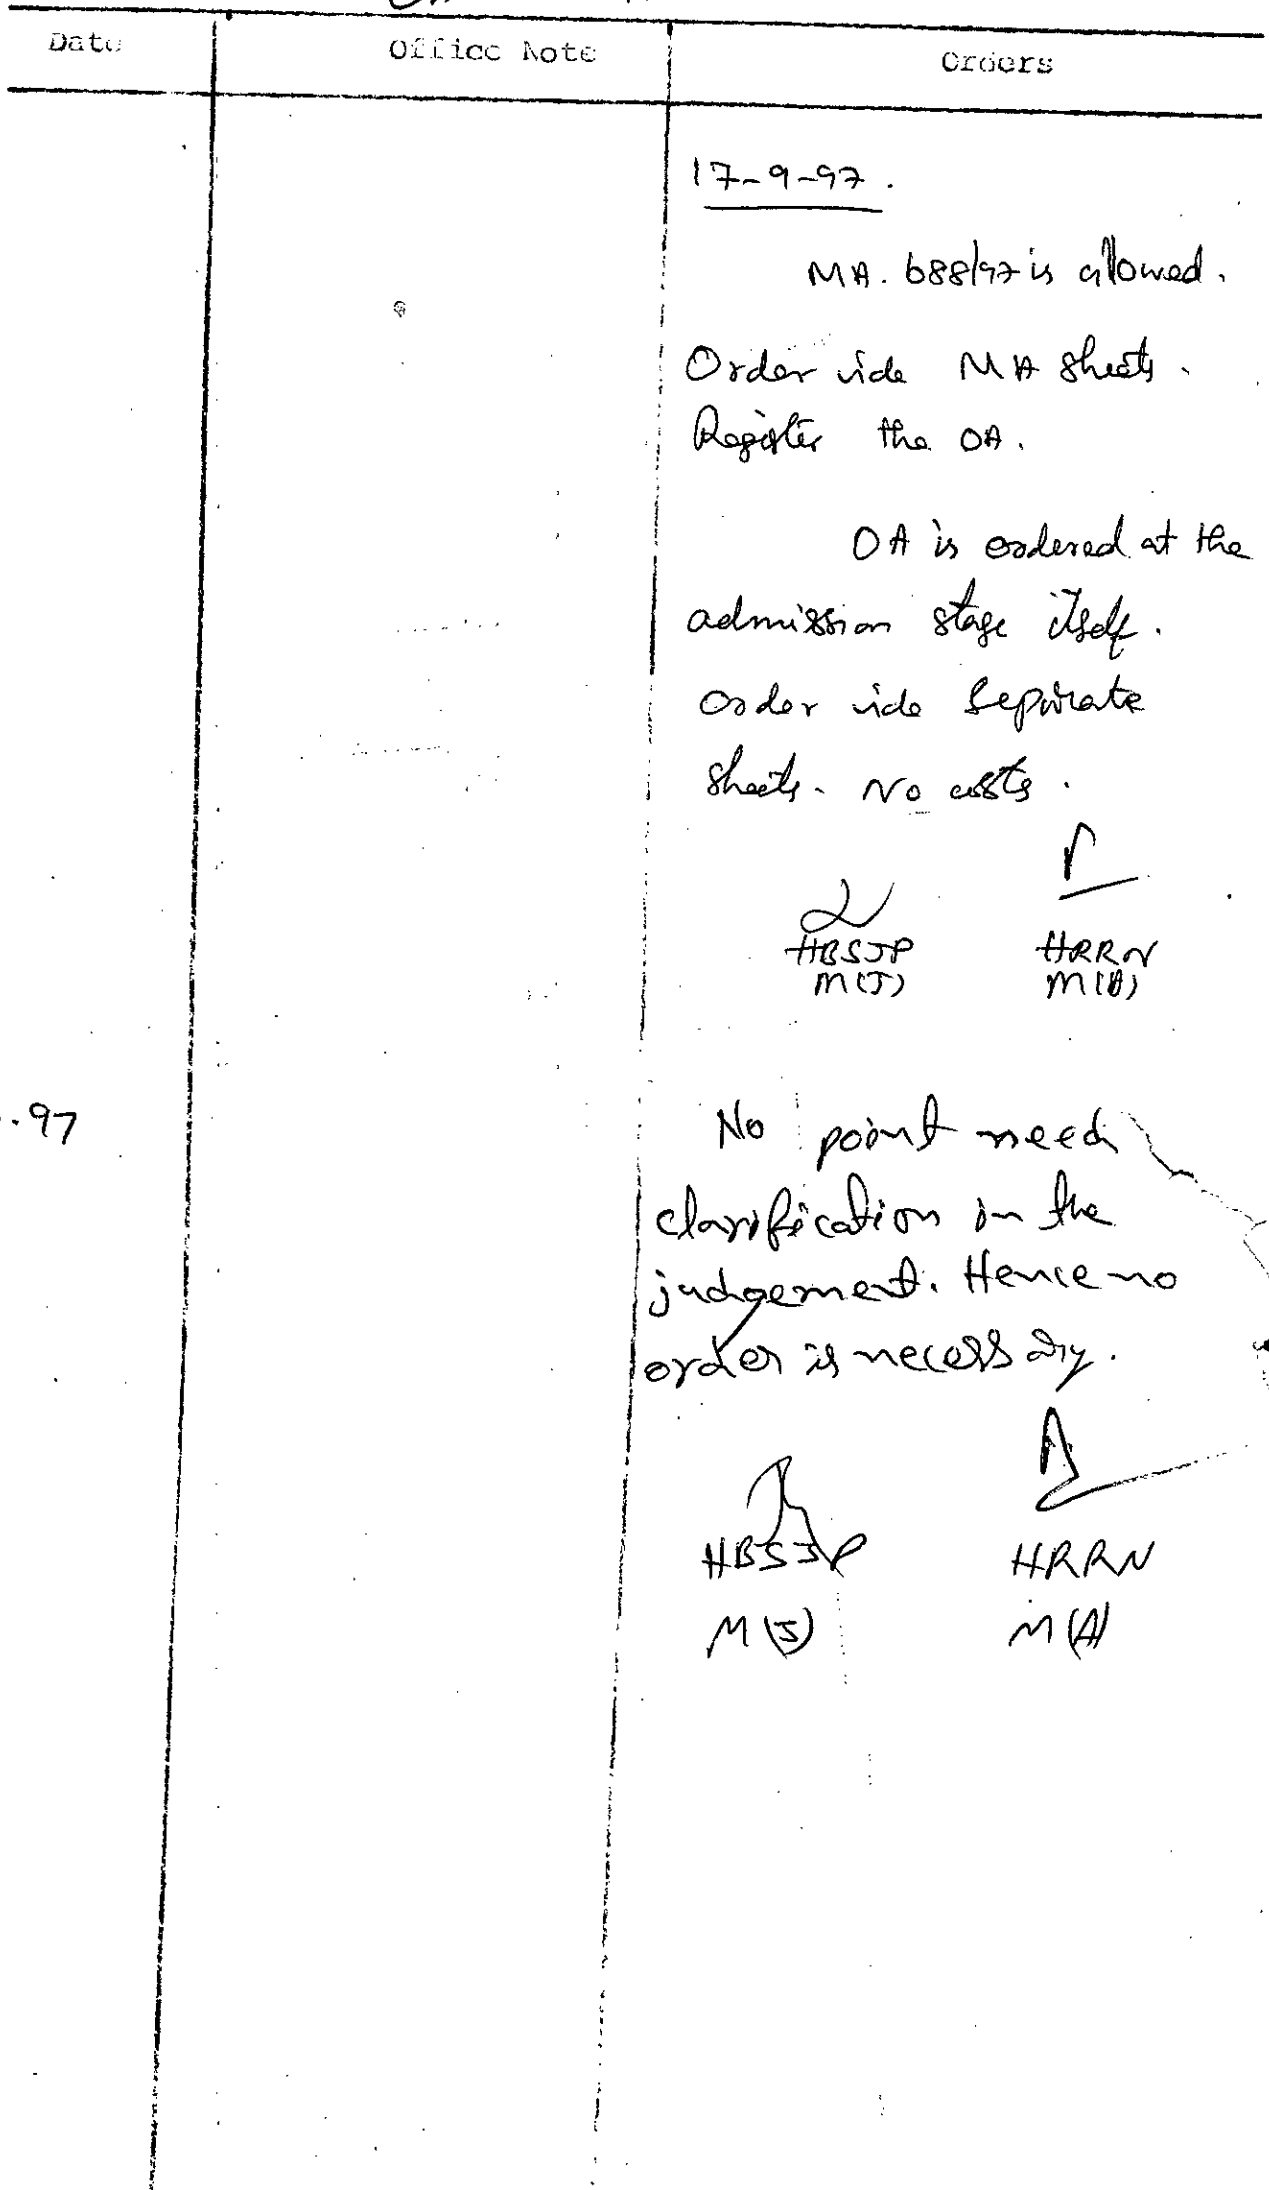 Date Office Note Orders
17-9-97.
MA. 688/97 is allowed.
Order vide MA sheets.
Register the OA.
OA is ordered at the
admission stage itself.
Order vide Separate
sheets. No costs.
HBSJP HRRN
M(J) M(A)
.97 No point need
clarification in the
judgement. Hence no
order is necessary.
HBSJP HRRN
M(J) M(A)